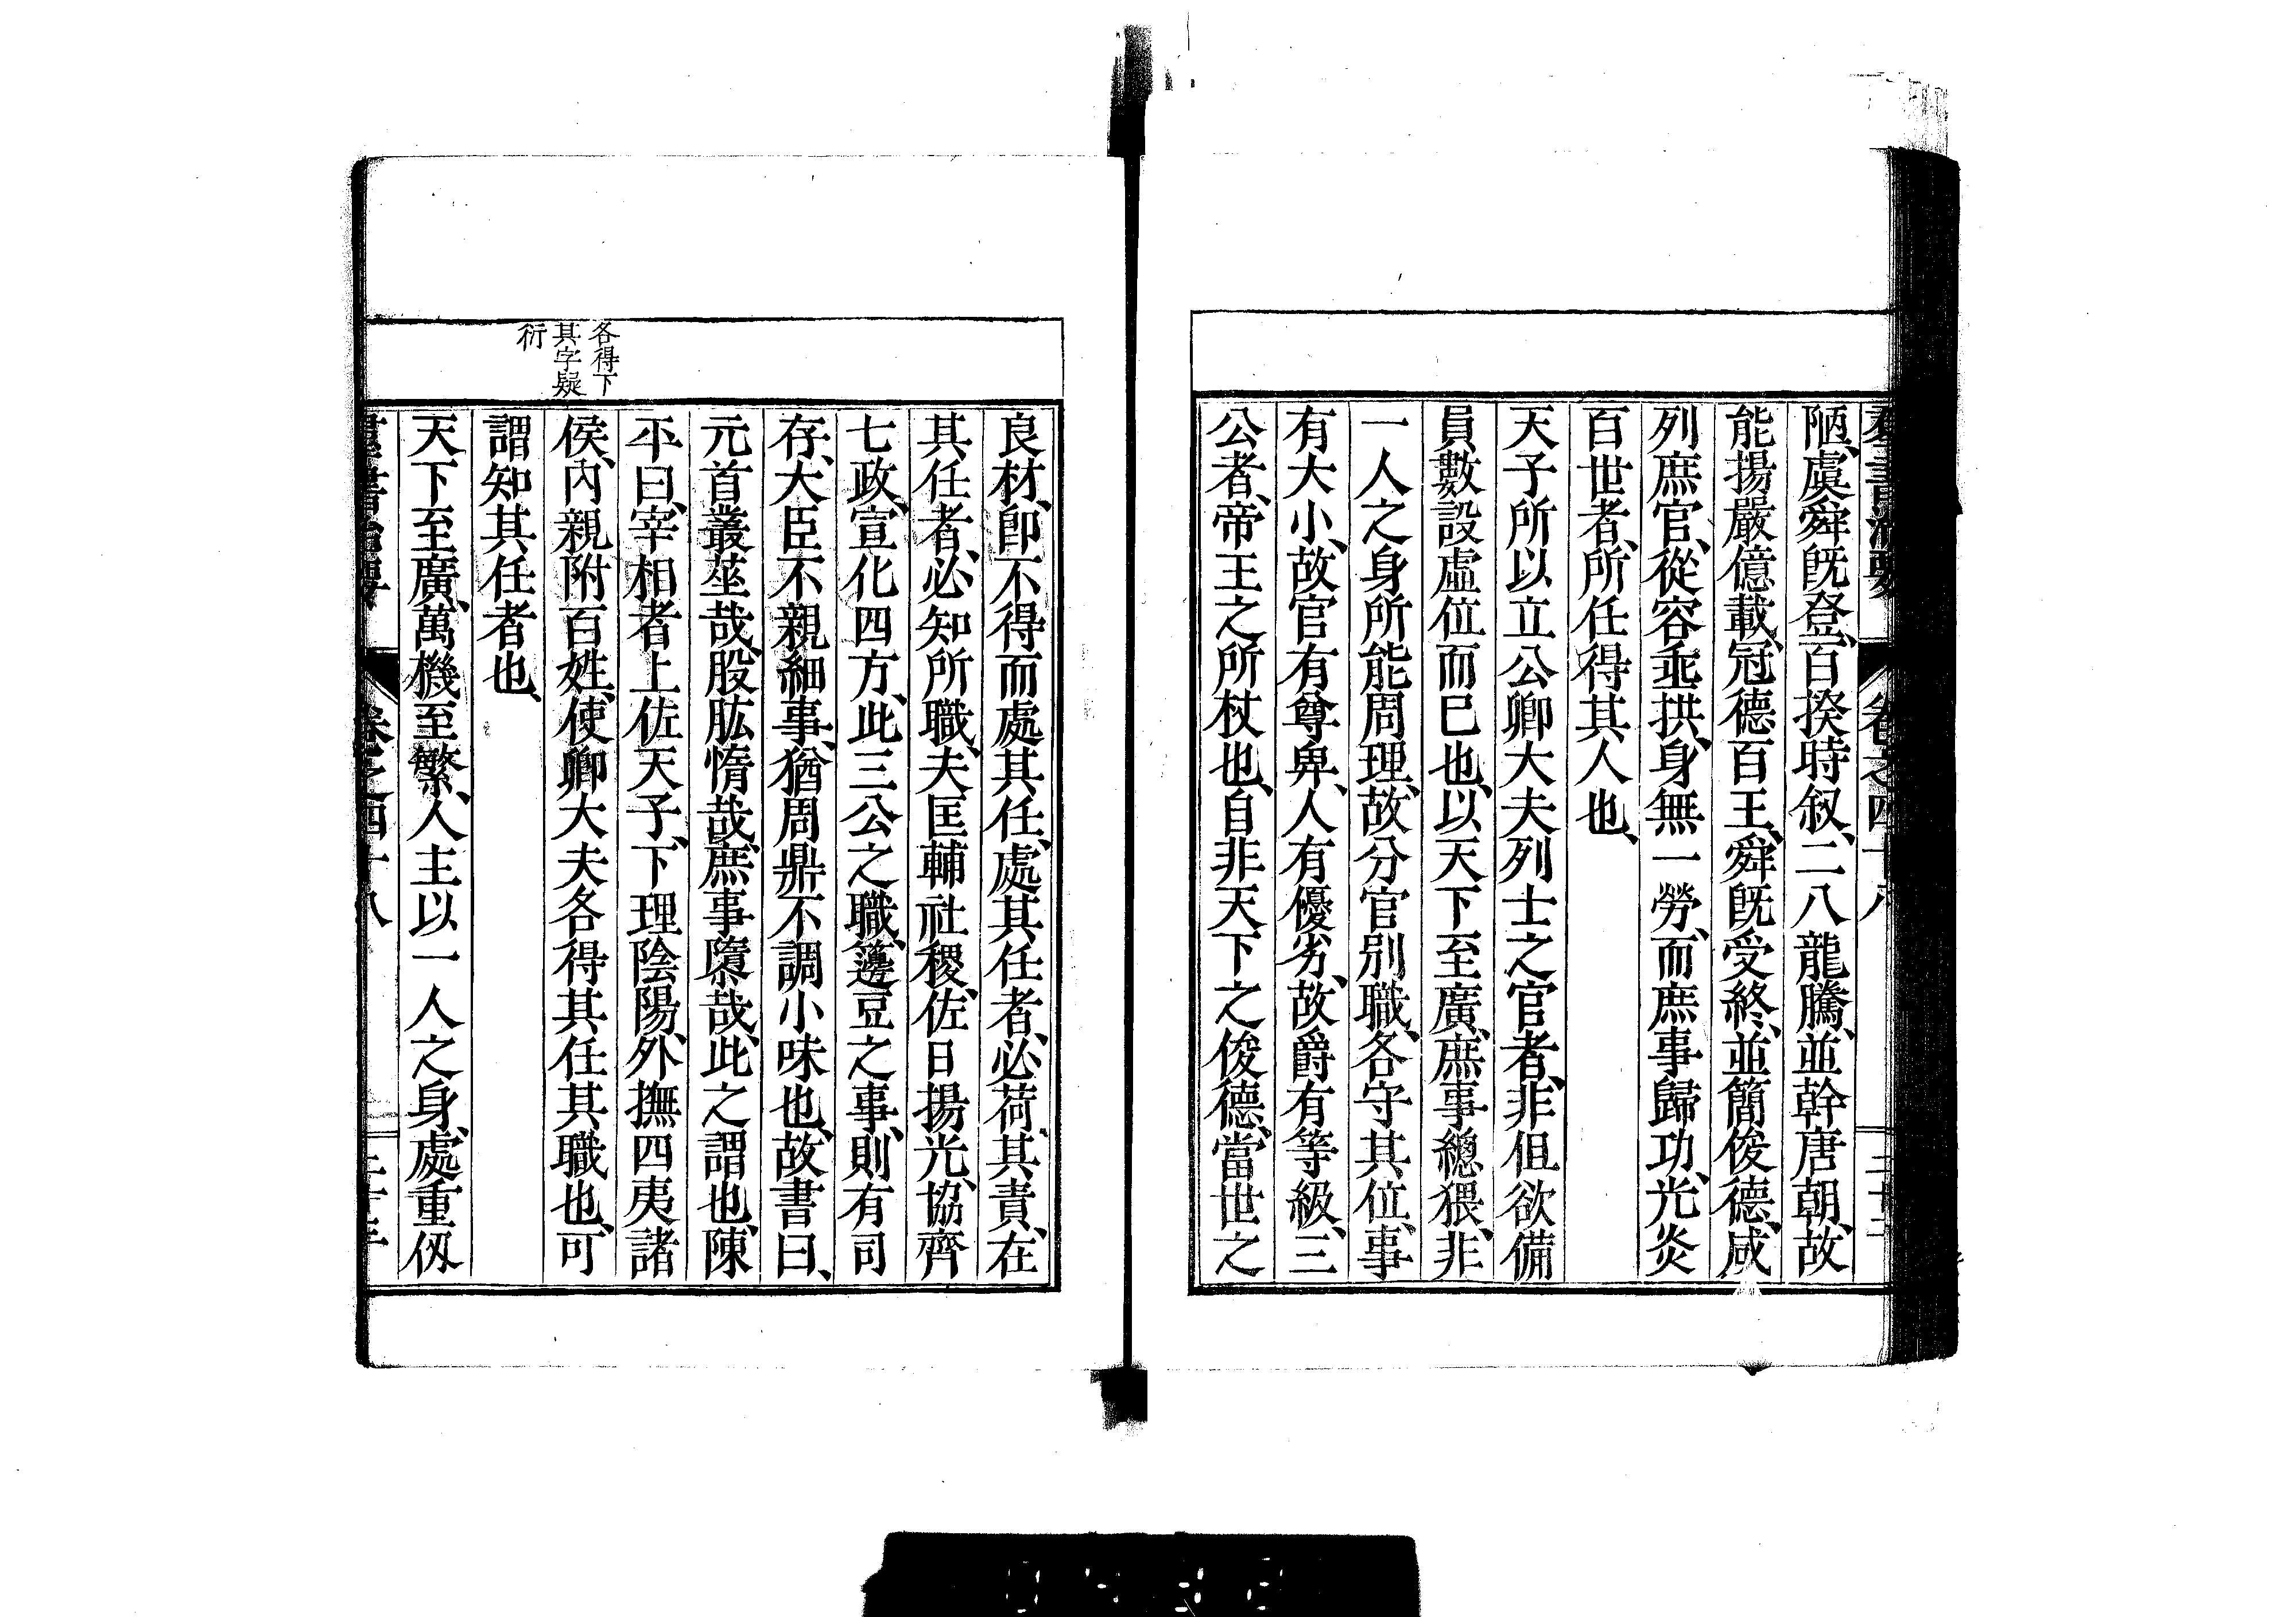 羣書治要 卷之四十八
陋、虞舜旣登、百揆時敍、二八龍騰、並幹唐朝、故
能揚嚴億載、冠德百王、舜旣受終、並簡俊德、咸
列庶官、從容垂拱、身無一勞、而庶事歸功、光炎
百世者、所任得其人也、
天子所以立公卿大夫列士之官者、非但欲備
員數設虛位而已也、以天下至廣、庶事總猥、非
一人之身所能周理、故分官別職、各守其位、事
有大小、故官有尊卑、人有優劣、故爵有等級、三
公者、帝王之所杖也、自非天下之俊德、當世之
良材、卽不得而處其任、處其任者、必荷其責、在
其任者、必知所職、夫匡輔社稷、佐日揚光、協齊
七政、宣化四方、此三公之職、籩豆之事、則有司
存、大臣不親細事、猶周鼎不調小味也、故書曰、
元首叢莝哉、股肱惰哉、庶事墮哉、此之謂也、陳
平曰、宰相者上佐天子、下理陰陽、外撫四夷諸
侯、內親附百姓、使卿大夫各得其任其職也、可
謂知其任者也、
天下至廣、萬機至繁、人主以一人之身、處重仭
各得下
其字疑
衍
羣書治要 卷之四十八